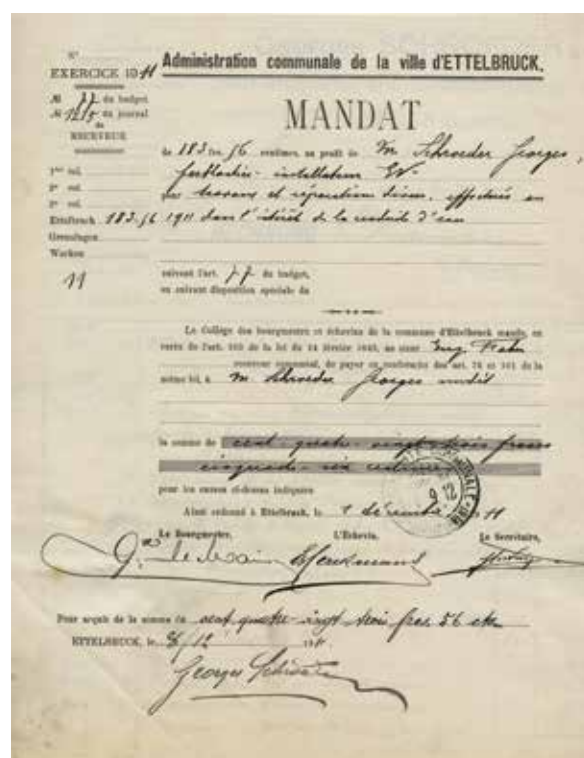 N°
EXERCICE 1911
Administration communale de la ville d'ETTELBRUCK.
№ 77 du budget
№ 1215 du journal
du
RECEVEUR
MANDAT
de 183 frs. 56 centimes, au profit de M Schroeder Georges,
ferblantier-installateur
pour travaux et réparation divers, effectués en
1re col.
2e col.
3e col.
Ettelbruck 183.56
1911 dans l'intérêt de la conduite d'eau
Grentzingen
Warken
11
suivant l'art. 77 du budget,
ou suivant disposition spéciale du
Le Collège des bourgmestre et échevins de la commune d'Ettelbruck mande, en
vertu de l'art. 103 de la loi du 24 février 1843, au sieur Eug.
receveur communal, de payer en conformité des art. 78 et 101 de la
même loi, à M. Schroeder Georges susdit
la somme de cent-quatre-vingt-trois francs
cinquante-six centimes
pour les causes ci-dessus indiquées
Ainsi ordonné à Ettelbruck, le 1 décembre 1911
9 12
Le Bourgmestre,
L'Echevin,
Le Secrétaire,
Pour acquit de la somme de cent quatre-vingt trois frcs. 56 cts
ETTELBRUCK, le /12 1911
Georges